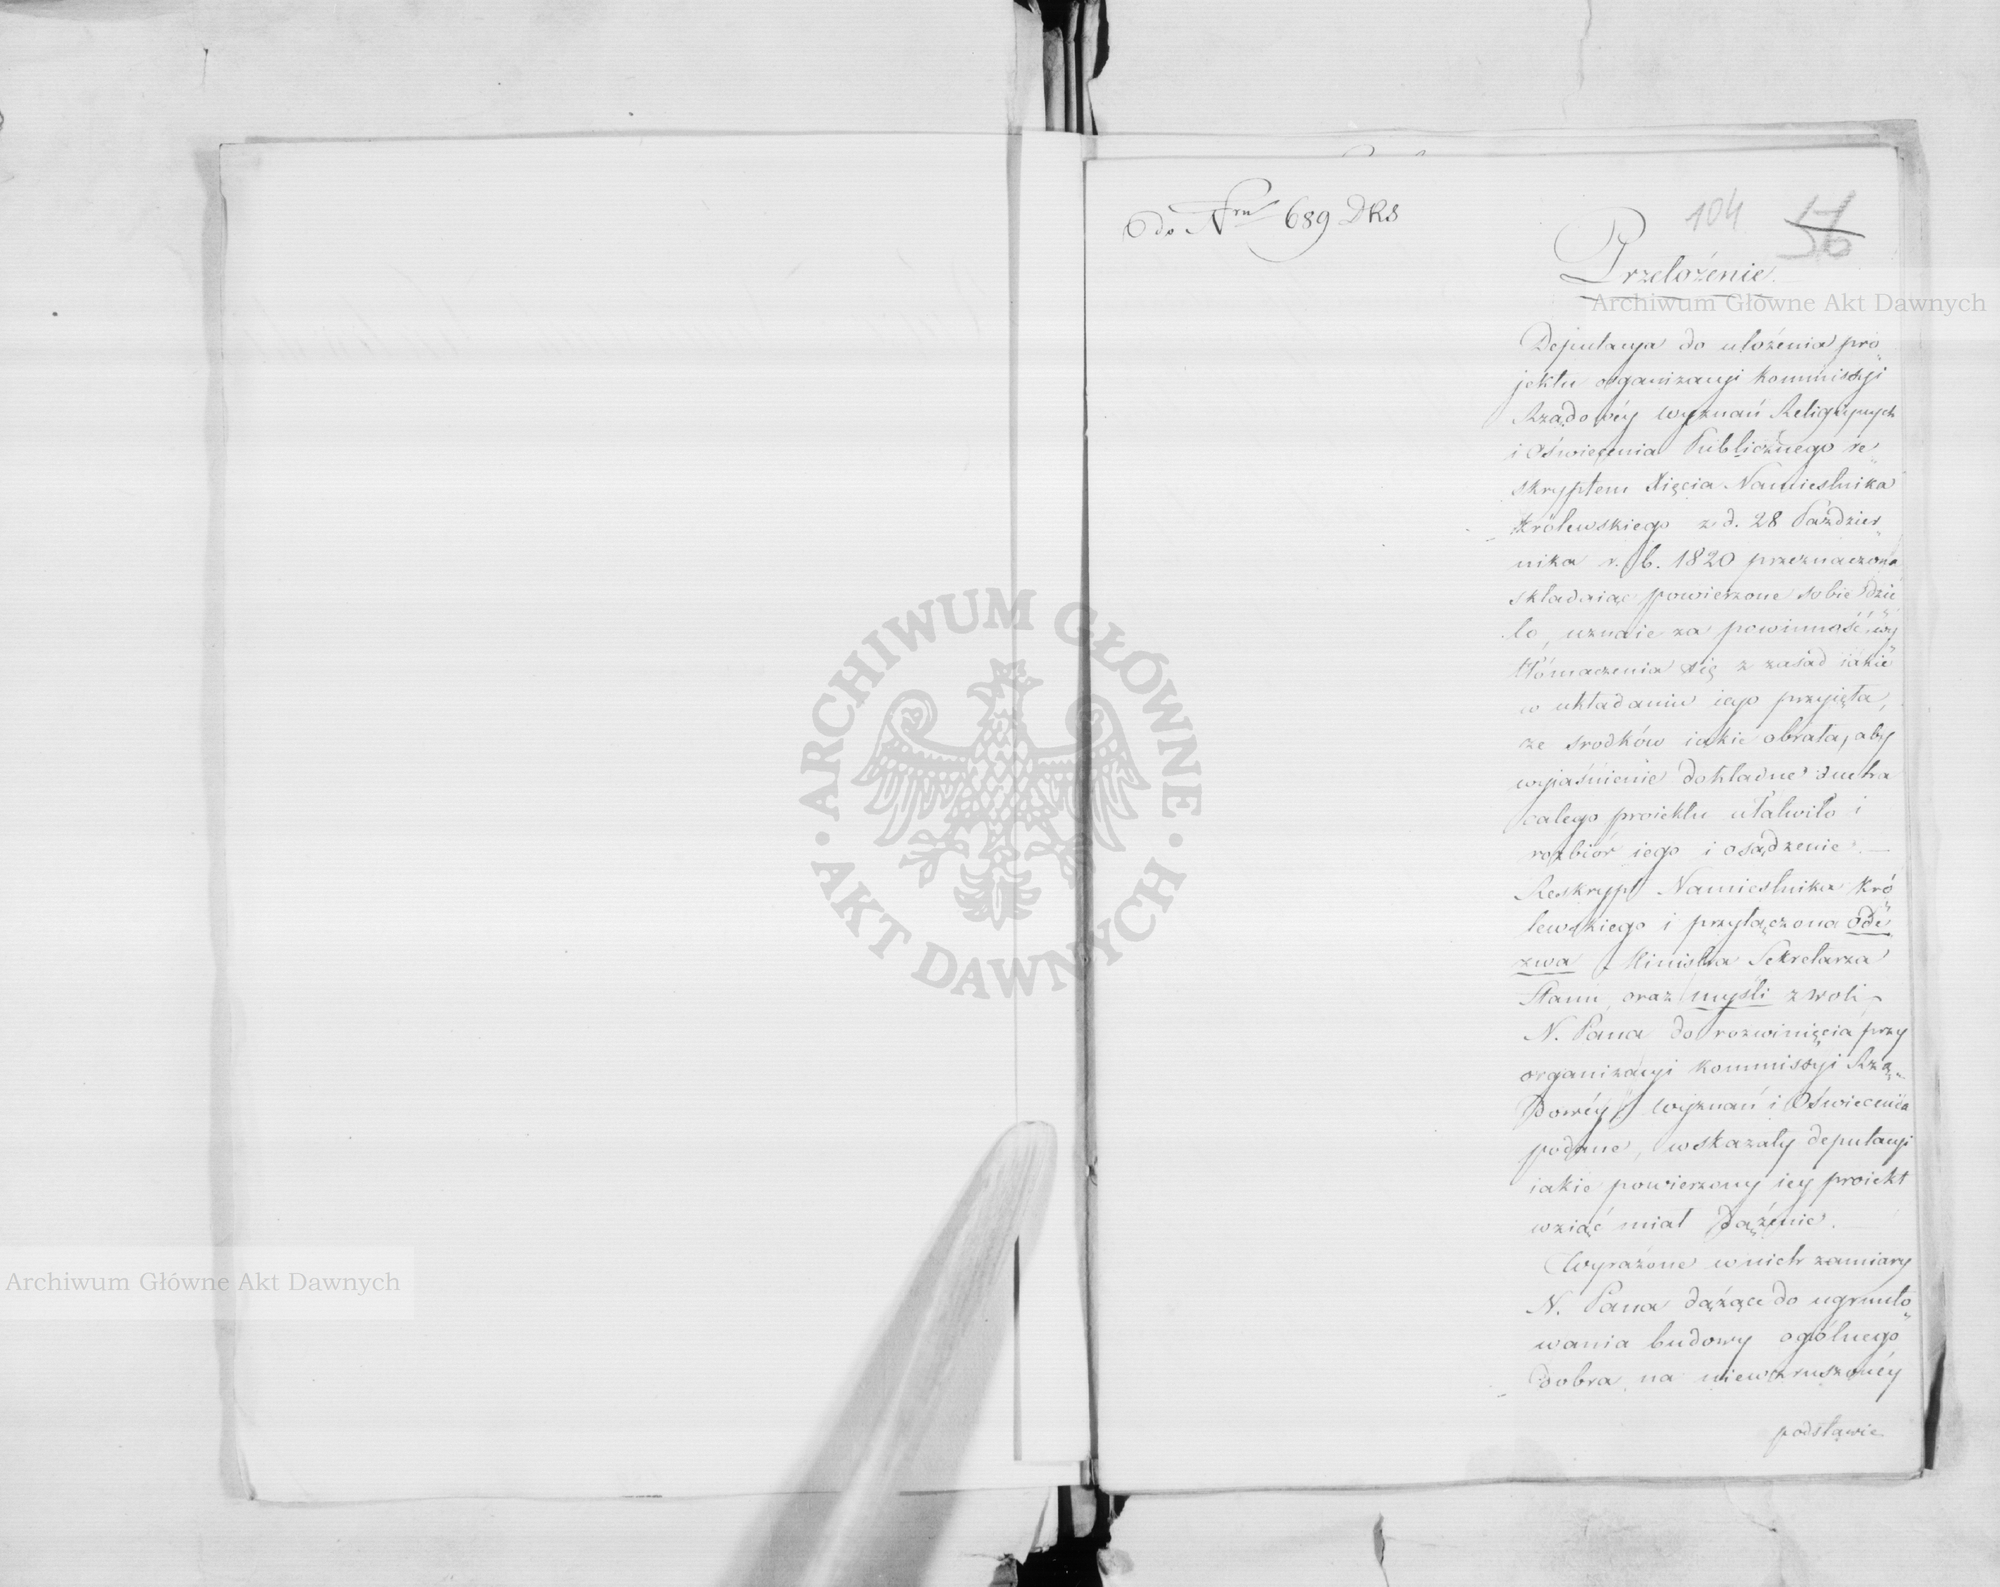 do Nru 689 DRS
104
56
Przełożenie.
Archiwum Główne Akt Dawnych
Deputacya do ułożenia pro
jektu organizacyi Kommissyi
Rządowéy Wyznań Religiynych
i Oświecenia Publicznego re
skryptem Xięcia Namiestnika
Królewskiego z d. 28 Paździer
nika r. b. 1820 przeznaczona
składaiąc powierzone sobie dzie
ło, uznaie za powinność wy
tłómaczenia się z zasad iakie
w układaniu iego przyięła,
ze srodków iakie obrała, aby
wyjaśnienie dokładne ducha
całego proiektu ułatwiło i
rozbiór iego i osądzenie. —
Reskrypt Namiestnika Kró
lewskiego i przyłączona ode
zwa Ministra Sekretarza
Stanu, oraz myśli z woli
N. Pana do rozwinięcia przy
organizacyi Kommissyi Rzą
dowéy Wyznań i Oświecenia
podane, wskazały deputacyi
iakie powierzony iey proiekt
wziąć miał dążenie. —
Wyrażone w nich zamiary
N. Pana dążące do ugrunto
wania budowy ogólnego
dobra na niewzruszonéy
podstawie
ARCHIWUM GŁÓWNE
AKT DAWNYCH
Archiwum Główne Akt Dawnych